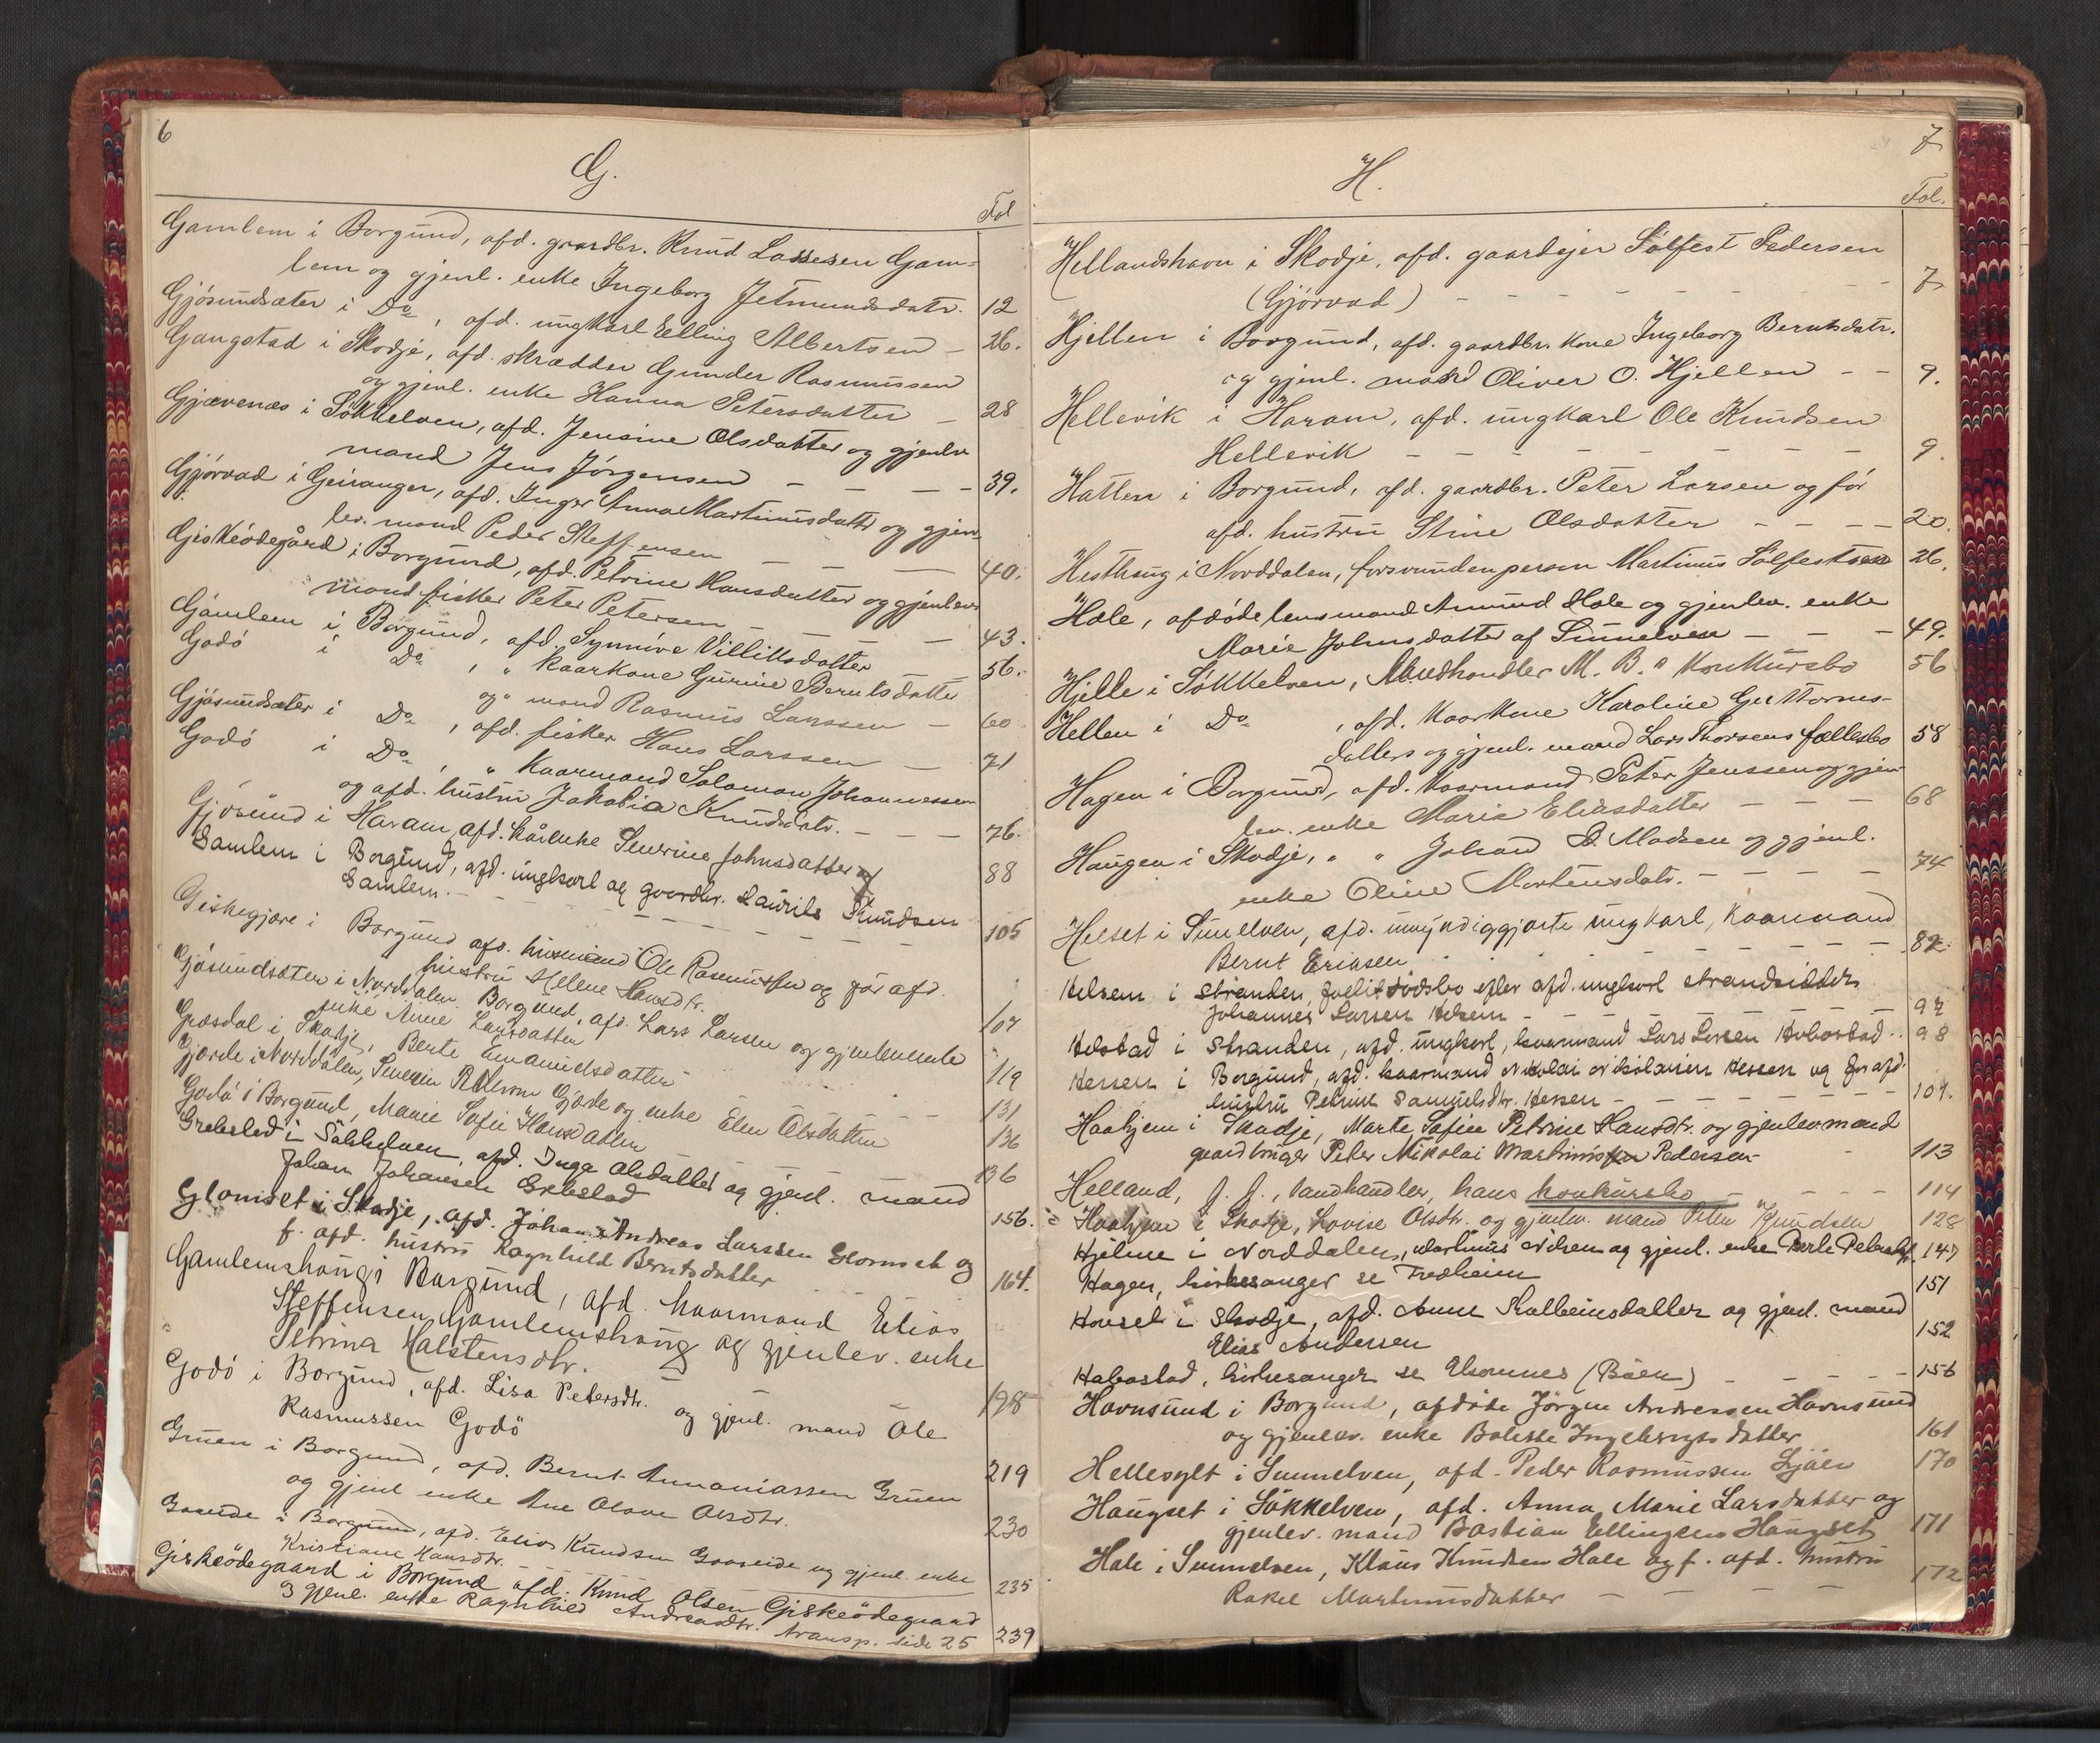 6
G.
Fol
Gamlem i Borgund, afd. gaardbr. Knud Lassesen Gam-
lem og gjenl. enke Ingeborg Jetmundsdatr. 12
Gjøsundsæter i Do, afd. ungkarl Elling Albertsen 26.
Gangstad i Skodje, afd. skrædder Gunder Rasmussen
og gjenl. enke Hanna Petersdatter 28
Gjævenæs i Søkkelven, afd. Jensine Olsdatter og gjenlev
mand Jens Jørgensen 39.
Gjørvad i Geiranger, afd. Inger Anna Martinusdattr og gjen-
lev. mand Peder Steffensen 40.
Giskeødegård i Borgund, afd. Petrine Hansdatter og gjenlev.
mand fisker Peter Petersen 43.
Gamlem i Borgund, afd. Synnöve Villiksdatter 56.
Godö i Do, " kaarkone Gurine Berntsdatter
og " mand Rasmus Larssen 60
Gjøsundsæter i Do, afd. fisker Hans Larssen 71
Godö i Do, " Kaarmand Salomon Johannessen
og afd. hustru Jakobia Knudsdatr. 76.
Gjøsund i Haram, afd. kårenke Severine Johnsdatter 88
Gamlem i Borgund, afd. ungkarl og gaardbr. Laurits Knudsen
Gamlem. 105
Giskegjære i Borgund afd. husmand Ole Rasmussen og før afd.
hustru Helene Hansdtr. 107
Gjøsundsæter i Borgund, afd. Lars Larsen og gjenlevende
enke Anne Larsdatter 119
Græsdal i Skodje, Berte Emanuelsdatter 131
Gjærde i Norddalen, Severin Gjærde og enke Elen Olsdatter 136
Godø i Borgund, Marie Sofie Hansdatter 136
Grebstad i Søkkelven, afd. Inga Olsdatter og gjenl. mand
Johan Johansen Grebstad 156.
Glomset i Skodje, afd. Johan Andreas Larssen Glomset og
f. afd. hustru Ragnhild Berntsdatter 164.
Gamlemshaug i Borgund, afd. kaarmand Elias
Steffensen Gamlemshaug og gjenlev. enke
Petrina Kalstensdtr. 198
Godö i Borgund, afd. Lisa Petersdtr. og gjenl. mand Ole
Rasmussen Godö 219
Gruen i Borgund, afd. Bernt Annaniassen Gruen
og gjenl enke Ane Olave Olsdtr. 230
Gaaseide i Borgund, afd. Elias Knudsen Gaaseide og gjenl. enke
Kristiane Hansdtr. 235
Giskeödegaard i Borgund afd. Knud Olsen Giskeödegaard
og gjenl. enke Ragnhild Andreasdtr. transp. side 25 239
7
H.
Fol.
Hellandshavn i Skodje, afd. gaardejer Sølfest Pedersen
(Gjørvad) 7
Hjellen i Borgund, afd. gaardbr. kone Ingeborg Berntsdatr.
og gjenl. mand Oliver O. Hjellen 9.
Hellevik i Haram, afd. ungkarl Ole Knudsen
Hellevik 9.
Hatlen i Borgund, afd. gaardbr. Peter Larsen og før
afd. hustru Stine Olsdatter 20.
Hesthaug i Norddalen, forsvunden person Martinus Sølfestsen 26.
Hole, afdøde lensmand Amund Hole og gjenlev. enke
Marie Johnsdatter af Sunnelven 49.
Hjelle i Søkkelven, Landhandler M. B. s konkursbo 56
Hellen i Do, afd. kaarkone Karoline Guttorms-
datters og gjenl. mand Lars Thorsens fællesbo 58
Hagen i Borgund, afd. kaarmand Peter Jenssen og gjen-
lev. enke Marie Eliasdatter 68
Haugen i Skodje, " " Johan B. Madsen og gjenl.
enke Oline Mortensdatr. 74
Helset i Sunelven, afd. umyndiggjorte ungkarl, kaarmand
Bernt Eriksen 82.
Helsem i Stranden, fallit dødsbo efter afd. ungkarl strandsidder
Johannes Larsen Helsem 92
Helstad i Stranden, afd. ungkarl, kaarmand Lars Larsen Habostad 98
Hessen i Borgund, afd. kaarmand Nikolai Nikolaisen Hessen og før afd.
hustru Petrine Samuelsdtr. Hessen 104.
Haahjem i Skodje, Marte Sofie Petrine Hansdtr. og gjenlev mand
gaardbruger Peter Nikolai Martinussen Pedersen 113
Helland, J. J., landhandler, hans konkursbo 114
Haahjem i Skodje, Lovise Olsdtr. og gjenlev. mand Peter Knudsen 128
Hjelme i Norddalen, Martinus Nilsen og gjenl. enke Berte Petersdtr. 147
Hagen, kirkesanger se Fredheim 151
Hovset i Skodje, afd. Anne Kolbeinsdatter og gjenl. mand
Elias Andersen 152
Habostad, kirkesanger se Elsornes (Bøen) 156
Havnsund i Borgund, afdøde Jørgen Andressen Havnsund
og gjenlev. enke Bolette Ingebrigtsdatter 161
Hellesylt i Sunnelven, afd. Peder Rasmussen Ljöen 170
Haugset i Søkkelven, afd. Anna Marie Larsdatter og
gjenlev. mand Bastian Ellingsen Haugset 171
Hole i Sunnelven, Klaus Knudsen Hole og f. afd. hustru
Rakel Martinusdatter 172